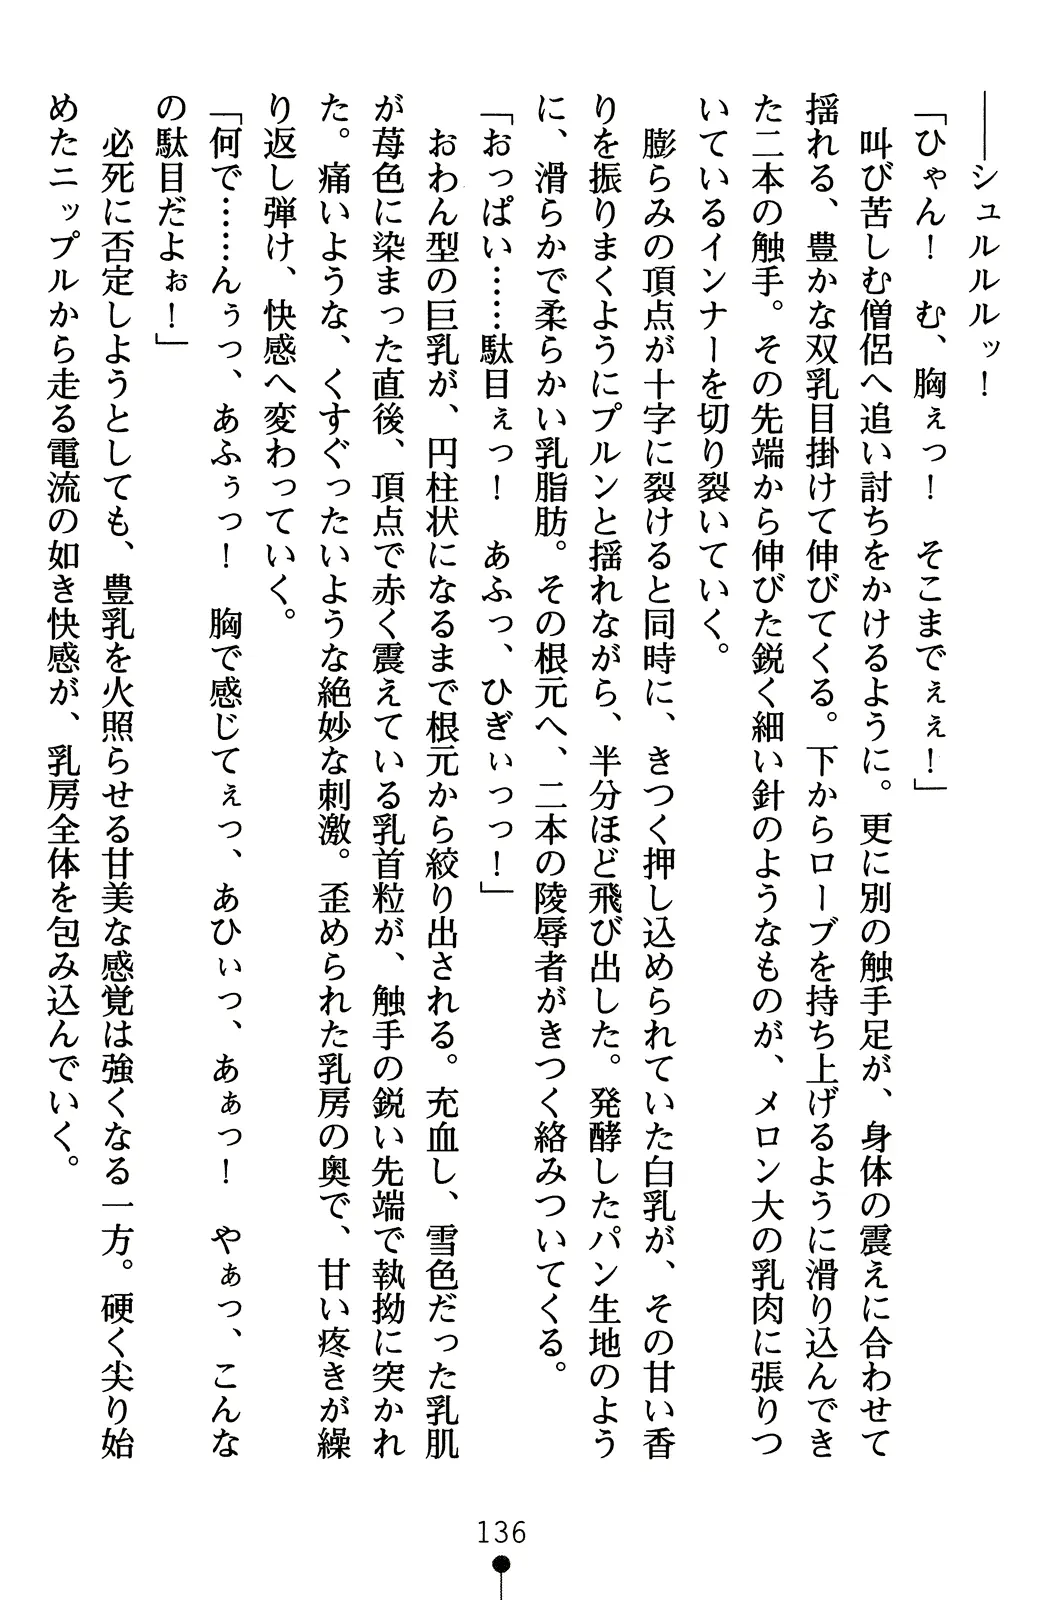 ――シュルルルッ！
「ひゃん！　む、胸ぇっ！　そこまでぇぇ！」
　叫び苦しむ僧侶へ追い討ちをかけるように。更に別の触手足が、身体の震えに合わせて
揺れる、豊かな双乳目掛けて伸びてくる。下からローブを持ち上げるように滑り込んでき
た二本の触手。その先端から伸びた鋭く細い針のようなものが、メロン大の乳肉に張りつ
いているインナーを切り裂いていく。
　膨らみの頂点が十字に裂けると同時に、きつく押し込められていた白乳が、その甘い香
りを振りまくようにプルンと揺れながら、半分ほど飛び出した。発酵したパン生地のよう
に、滑らかで柔らかい乳脂肪。その根元へ、二本の陵辱者がきつく絡みついてくる。
「おっぱい……駄目ぇっ！　あふっ、ひぎぃっっ！」
　おわん型の巨乳が、円柱状になるまで根元から絞り出される。充血し、雪色だった乳肌
が苺色に染まった直後、頂点で赤く震えている乳首粒が、触手の鋭い先端で執拗に突かれ
た。痛いような、くすぐったいような絶妙な刺激。歪められた乳房の奥で、甘い疼きが繰
り返し弾け、快感へ変わっていく。
「何で……んぅっ、あふぅっ！　胸で感じてぇっ、あひぃっ、あぁっ！　やぁっ、こんな
の駄目だよぉ！」
　必死に否定しようとしても、豊乳を火照らせる甘美な感覚は強くなる一方。硬く尖り始
めたニップルから走る電流の如き快感が、乳房全体を包み込んでいく。
136